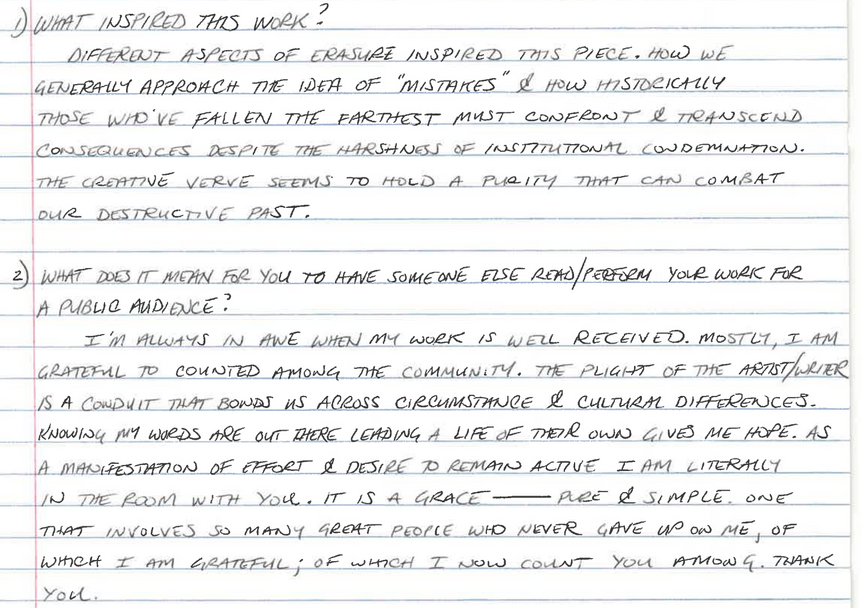 1) WHAT INSPIRED THIS WORK?
DIFFERENT ASPECTS OF ERASURE INSPIRED THIS PIECE. HOW WE
GENERALLY APPROACH THE IDEA OF "MISTAKES" & HOW HISTORICALLY
THOSE WHO'VE FALLEN THE FARTHEST MUST CONFRONT & TRANSCEND
CONSEQUENCES DESPITE THE HARSHNESS OF INSTITUTIONAL CONDEMNATION.
THE CREATIVE VERVE SEEMS TO HOLD A PURITY THAT CAN COMBAT
OUR DESTRUCTIVE PAST.
2) WHAT DOES IT MEAN FOR YOU TO HAVE SOMEONE ELSE READ/PERFORM YOUR WORK FOR
A PUBLIC AUDIENCE?
I'M ALWAYS IN AWE WHEN MY WORK IS WELL RECEIVED. MOSTLY, I AM
GRATEFUL TO COUNTED AMONG THE COMMUNITY. THE PLIGHT OF THE ARTIST/WRITER
IS A CONDUIT THAT BONDS US ACROSS CIRCUMSTANCE & CULTURAL DIFFERENCES.
KNOWING MY WORDS ARE OUT THERE LEADING A LIFE OF THEIR OWN GIVES ME HOPE. AS
A MANIFESTATION OF EFFORT & DESIRE TO REMAIN ACTIVE I AM LITERALLY
IN THE ROOM WITH YOU. IT IS A GRACE — PURE & SIMPLE. ONE
THAT INVOLVES SO MANY GREAT PEOPLE WHO NEVER GAVE UP ON ME, OF
WHICH I AM GRATEFUL; OF WHICH I NOW COUNT YOU AMONG. THANK
YOU.